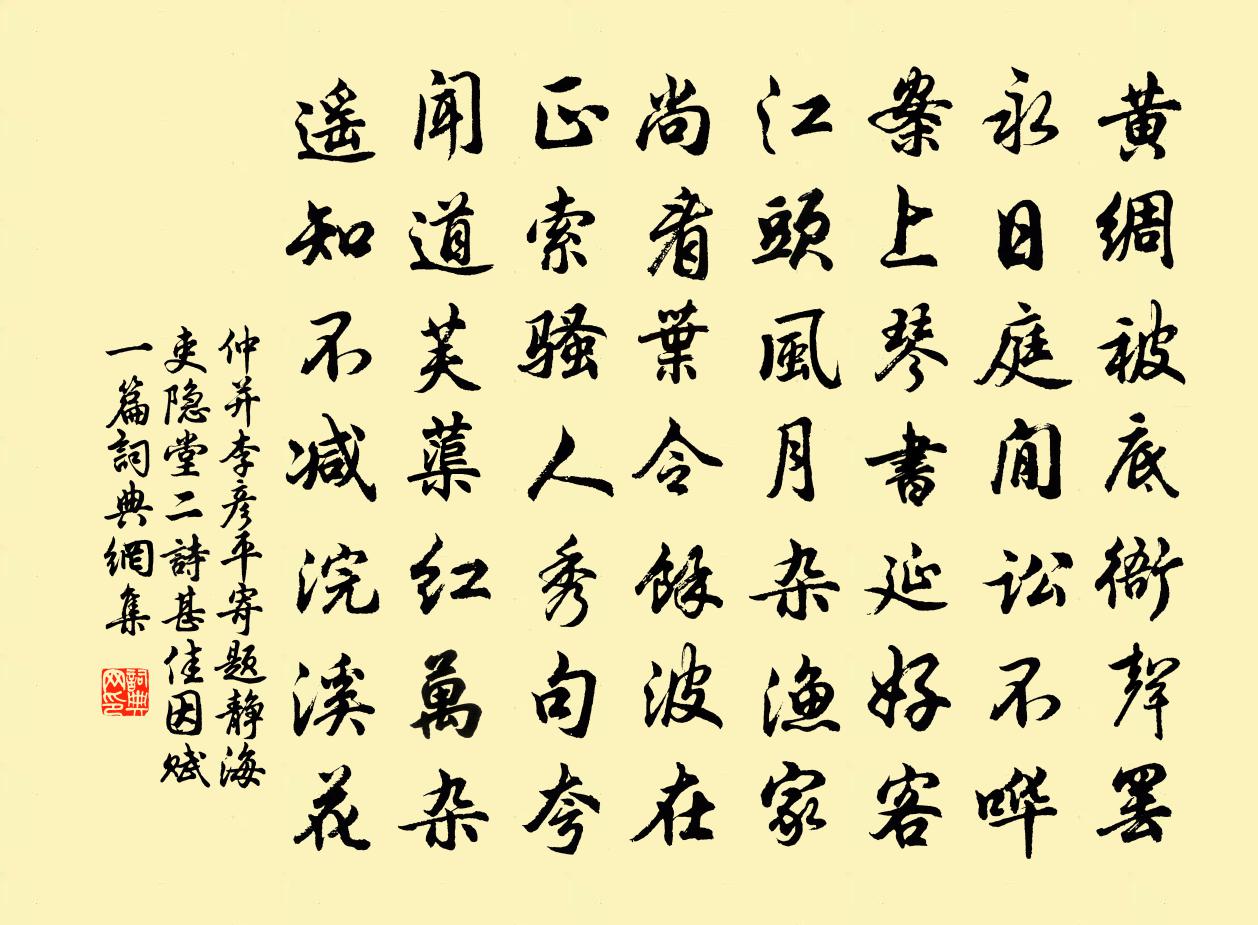 黄綢被底衙聲罷
永日庭閒訟不哗
案上琴書延好客
江頭風月杂漁家
尚看葉令餘波在
正索騷人秀句夸
聞道芙蕖红萬杂
遥知不减浣溪花
仲并李彦平寄题静海
吏隐堂二詩甚佳因赋
一篇詞典網集
詞典网印